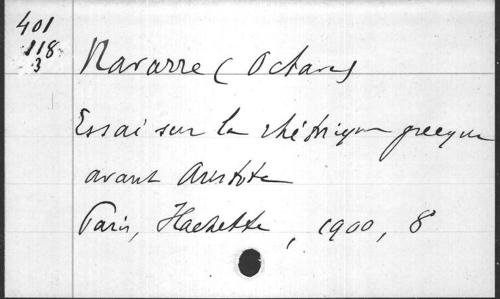 401
118
3
Navarre (Octave)
Essai sur la rhétorique grecque
avant Aristote
Paris, Hachette, 1900, 8°